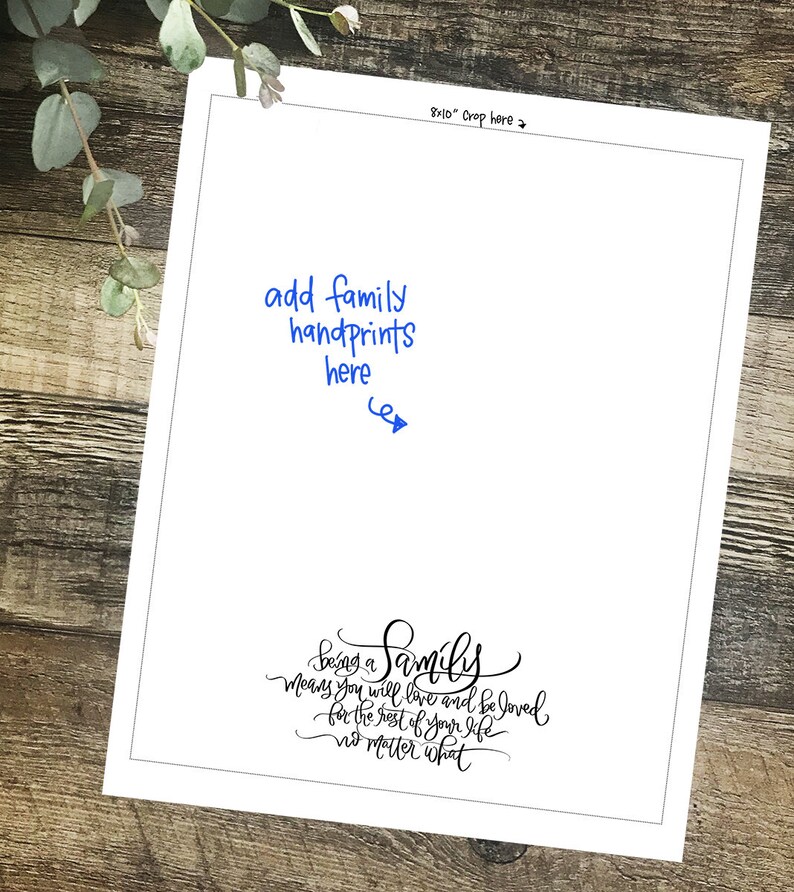 8x10" Crop here
add family
handprints
here
being a family
means you will love and be loved
for the rest of your life
no matter what